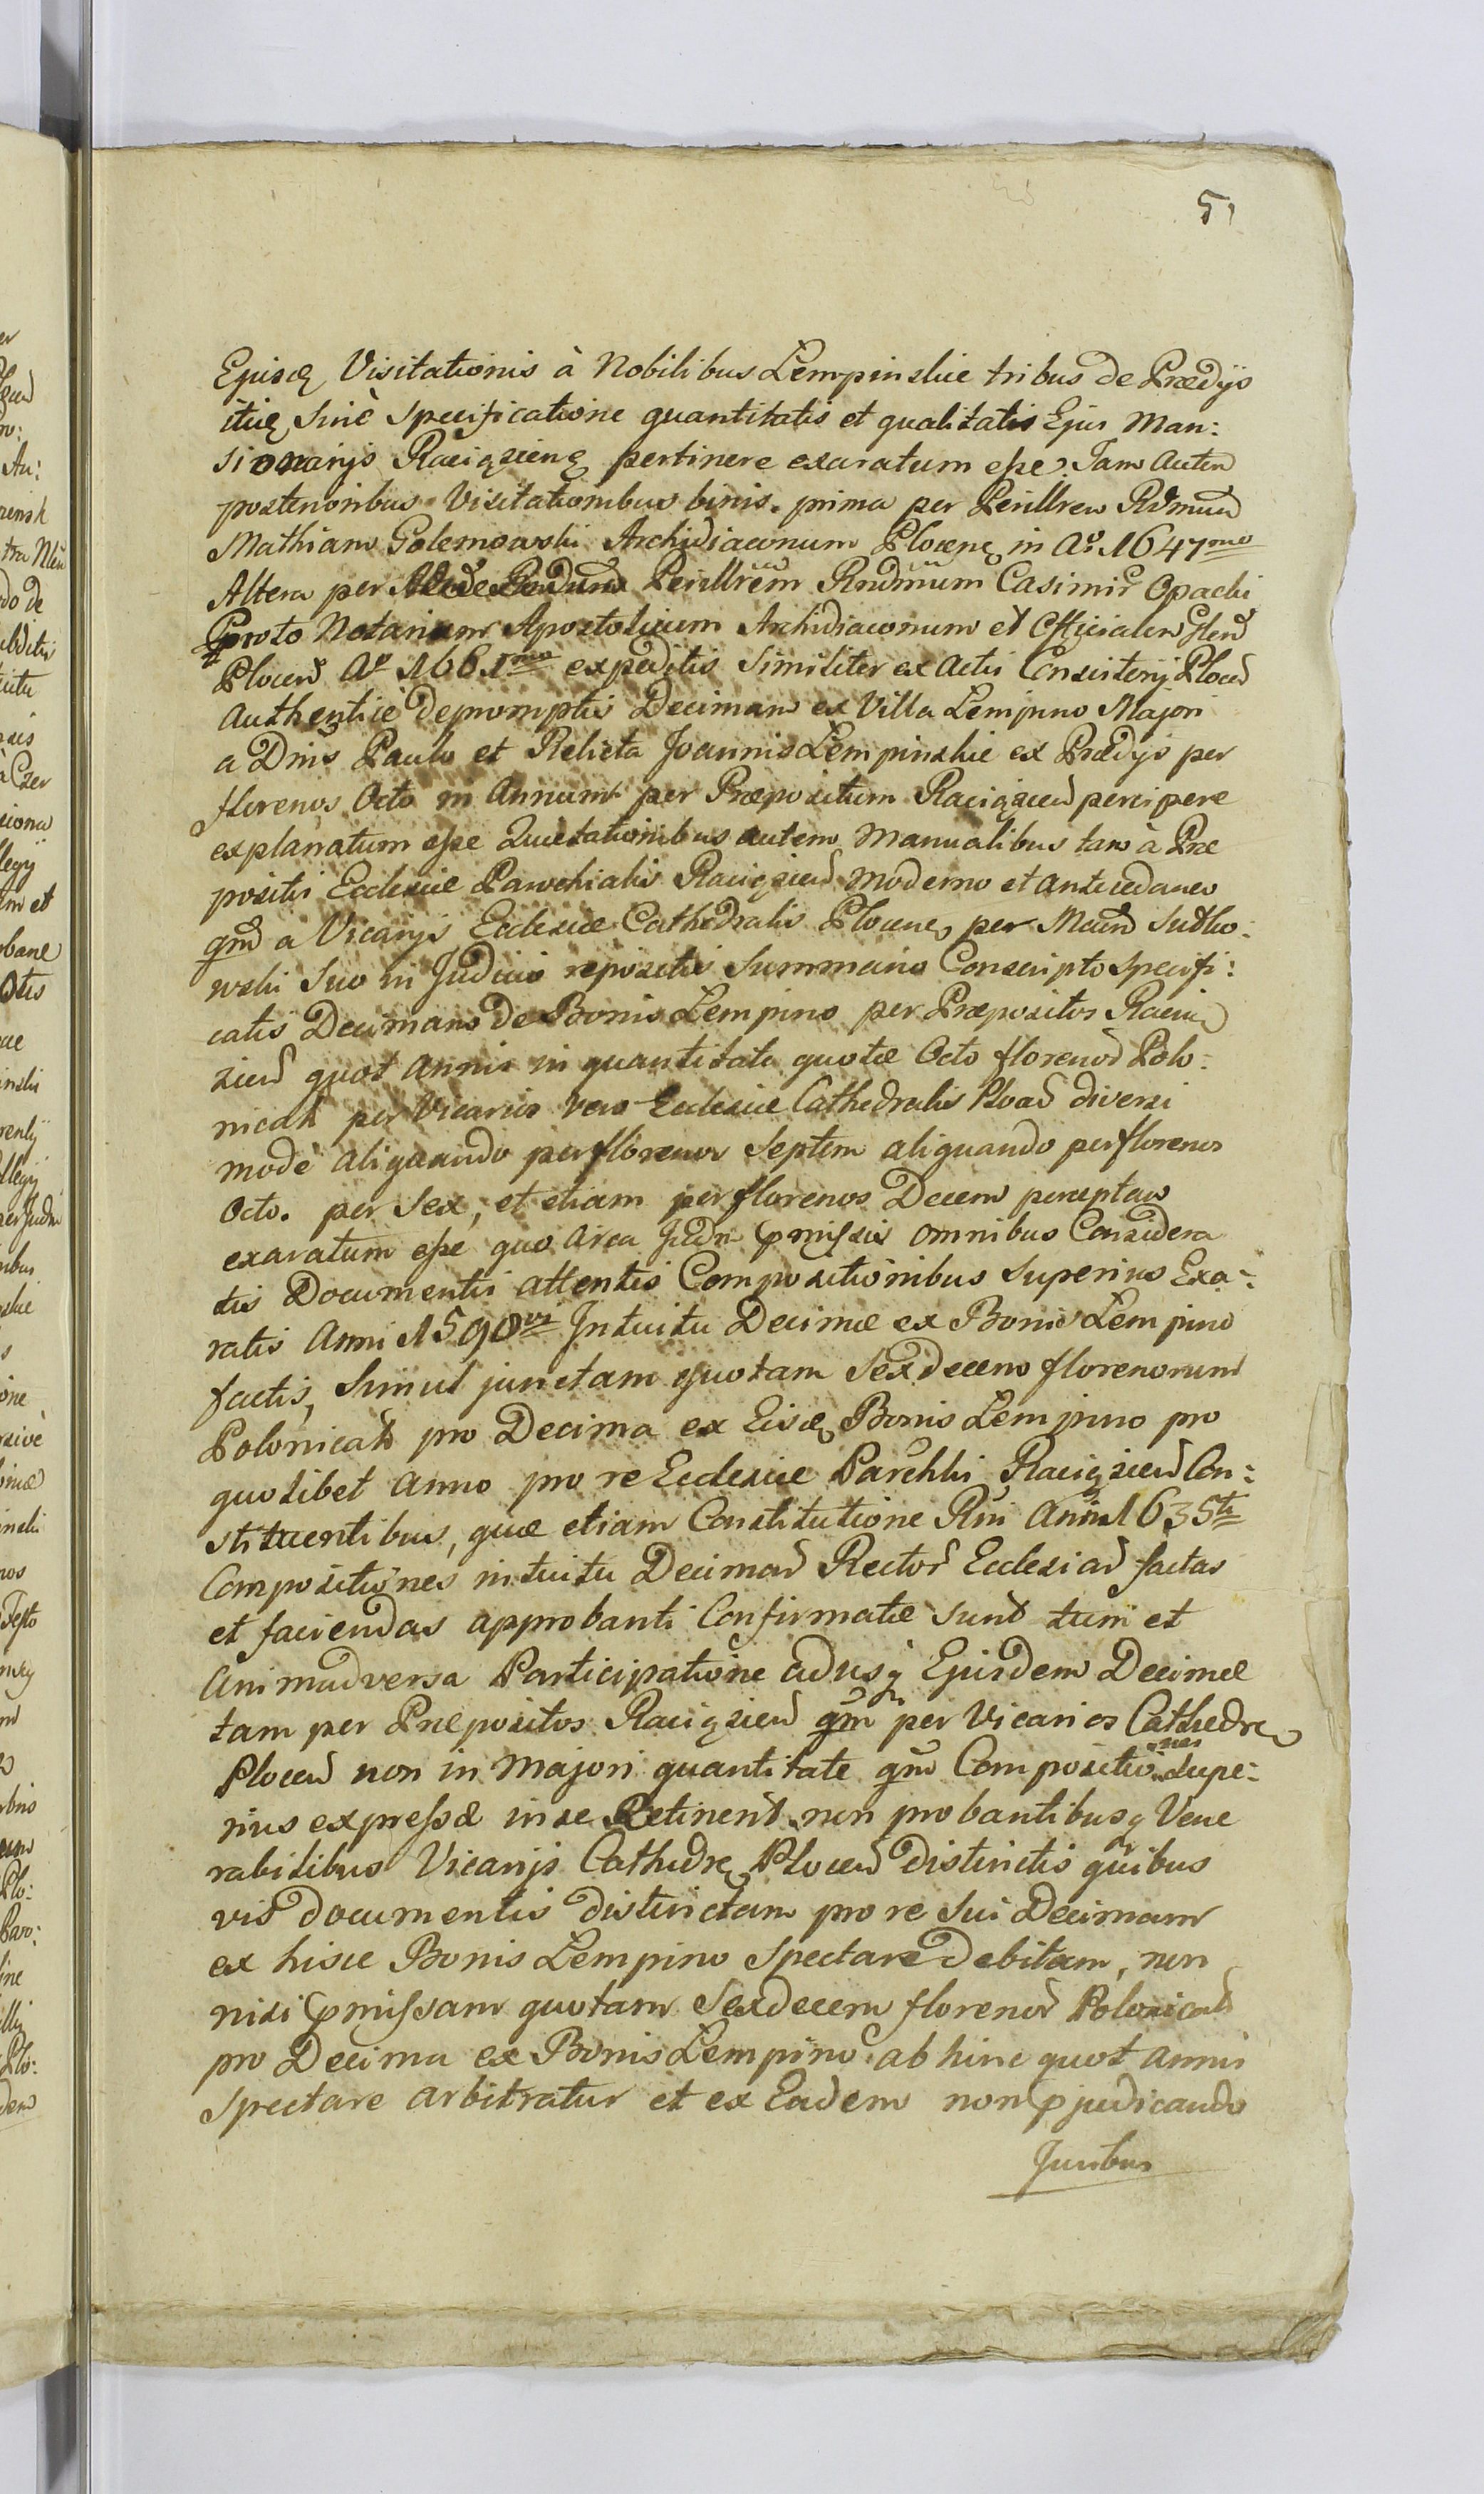 51
Ejusq Visitationis à Nobilibus Lempinskie tribus de Prædijs
ituę Sinè Specificatione quantitatis et qualitatis Ejus Man:
sionarijs Raciązienę pertinere exaratum eſse. Jam Autem
posterioribus Visitationibus binis. prima per Perillrem Rdmum
Mathiam Golemowski Archidiaconum Plocenę in Aº 1647mo
Altera per Perillrem Rndmum Casimir Opacki
Proto Notarium Apostolicum Archidiaconum et Officialem Glen
Plocen Aº 1661mo expeditis Similiter ex Actis Consistorij Plocen
Authentice depromptis Decimam ex Villa Lempino Majori
a Dnis Paulo et Relicta Joannis Lempinskie ex Prædijs per
florenos Octo in Annum per Præpositum Raciązien percipere
explanatum eſse Quietationibus autem Manualibus tam à Præ
positis Ecclesiæ Parochialis Raciązien moderno et antecedaneo
qm a Vicarijs Ecclesiæ Cathedralis Plocenę per Sutko:
wski Suo in Judicio repositis Summario Conscripto Specifi:
catis Decimam de Bonis Lempino per Præpositos Racią
zien quot Annis in quantitate quotæ Octo florenor Polo:
nical per Vicarios vero Ecclesiæ Cathedralis Plocen diversi
mode aliquando per florenos Septem aliquando per florenos
Octo. per Sex, et etiam per florenos Decem perceptam
exaratum eſse quo circa Judm pmiſsis omnibus Considera
tis Documentis attentis Compositionibus Superius Exa:
ratis Anni 1590vi Intuitu Decimæ ex Bonis Lempino
factis, Simul junctam quotam Sexdecem florenorum
Polonical pro Decima ex Eisdę Bonis Lempino pro
quolibet Anno pro re Ecclesiæ Parchlis Raciązien Con:
stituentibus, quæ etiam Constitutione Rni Anni 1635ti
Compositiones intuitu Decimar Rector Ecclesiar factas
et faciendas approbanti Confirmatæ sunt tum et
Animadversa Participatione adusq Ejusdem Decimæ
tam per Præpositos Raciązien qm per Vicarios Cathedrę
Plocen non in Majori quantitate qm Compositiones Supe:
rius expreſsæ in se Retinent non probantibusq Vene
rabilibus Vicarijs Cathedrę Plocen distinctis quibus
vis documentis distinctam pro re Sui Decimam
ex hisce Bonis Lempino Spectare debitam, non
nisi pmiſsam quotam Sexdecem florenor Polonical
pro Decima ex Bonis Lempino ab hinc quot annis
Spectare arbitratur et ex Eadem non pjudicando
Juribus